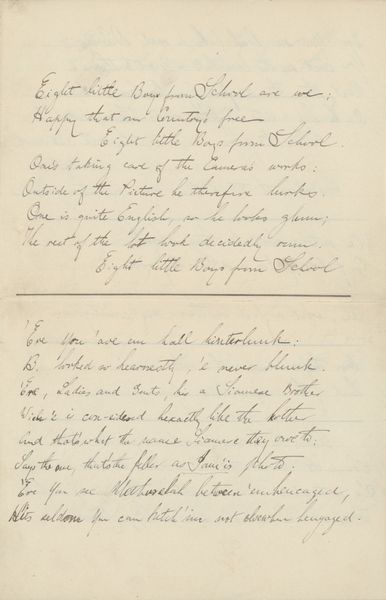 Eight little Boys from School are we;
Happy that our Country's free
Eight little Boys from School.
One's taking care of the Camera's works:
Outside of the Picture he therefore lurks.
One is quite English, so he looks glum;
The rest of the lot look decidedly rum.
Eight little Boys from School
'Ere You 'ave em hall hinterlunk:
B. looked so hearnestly, 'e never blunk.
'Ere, Ladies and Gents, his a Siamese Brother
Wich 'e is con-sidered hexactly like the hother
And that's what the name Siamese they owe to:
Says the one, that's the feller as photo.
'Ere You see Methuselah between 'em hencaged,
Hits seldom You can ketch 'im not elsewhere hengaged.